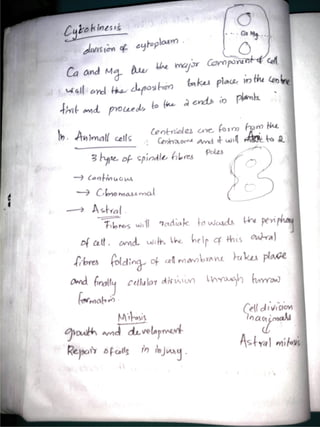 Cytokinesis
division of cytoplasm.
Ca Mg
Ca and Mg are the major component of cell
wall and the deposition takes place in the centre
first and proceeds to the 2 ends in plants.
In. Animall cells
Centrioles are form from the
Centrosome and it will to 2
Poles
3 type of spindle fibres
→ Continuous
→ Cibromosomal
→ Astral
Fibres will radiate towards the periphery
of cell. and with the help of this astral
fibres folding of cell membrane takes place
and finally cellular division through furrow
formation
Mitosis
growth and development
Repair of cells in injury.
Cell division
in animals
Astral mitosis